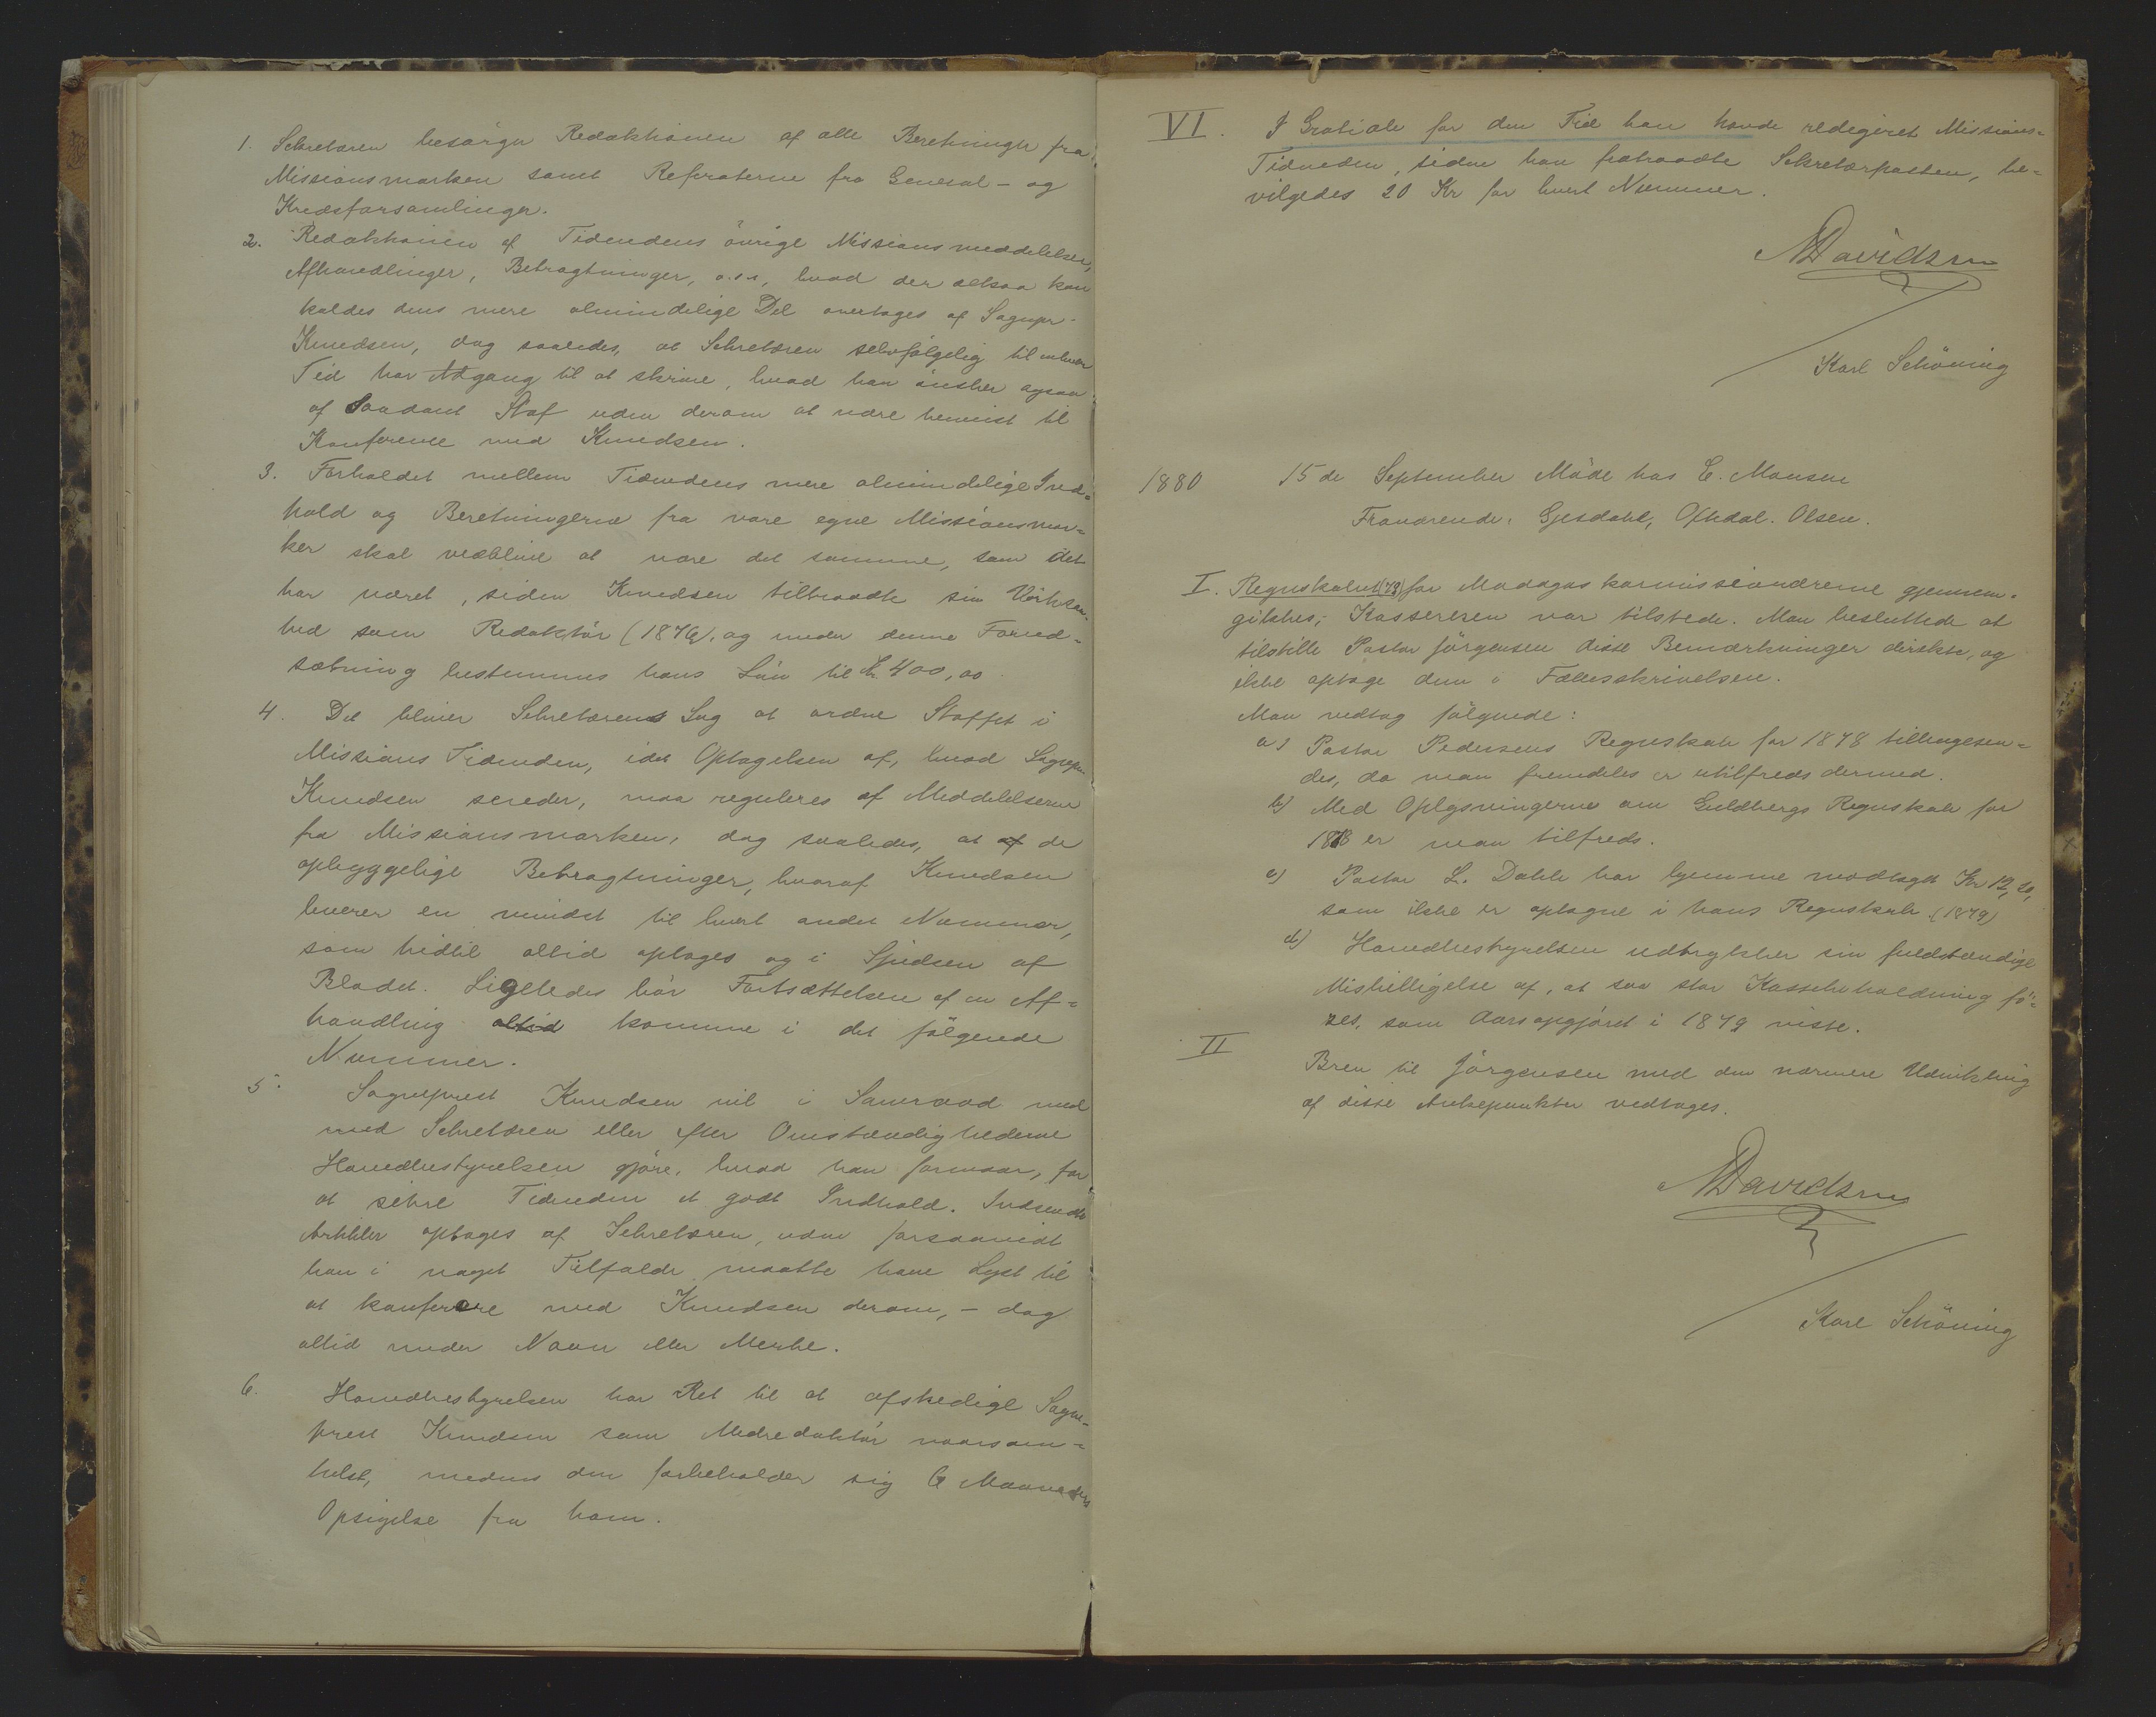 1. Sekretæren besørger Redaktionen af alle Beretninger fra
Missionsmarken samt Referaterne fra General- og
Kredsforsamlinger.
2. Redaktionen af Tidendens øvrige Missionsmeddelelser,
Afhandlinger, Betragtninger, o.s.v., hvad der altsaa kan
kaldes dens mere almindelige Del overtages af Sognepr.
Knudsen, dog saaledes, at Sekretæren selvfølgelig til enhver
Tid har Adgang til at skrive, hvad han ønsker ogsaa
af saadant Stof uden derom at være henvist til
Konference med Knudsen.
3. Forholdet mellem Tidendens mere almindelige Ind-
hold og Beretningerne fra vore egne Missionsmar=
ker skal vedblive at være det samme, som det
har været, siden Knudsen tiltraadte sin Virksom-
hed som Redaktør (1876), og under denne Forud-
sætning bestemmes hans Løn til Kr. 400,00
4. Det bliver Sekretærens Sag at ordne Stoffet i
Missions Tidenden, idet Optagelsen af, hvad Sognepr.
Knudsen sender, maa reguleres af Meddelelserne
fra Missionsmarken, dog saaledes, at af de
opbyggelige Betragtninger, hvoraf Knudsen
leverer en mindst til hvert andet Nummer,
som hidtil altid optages og i Spidsen af
Bladet. Ligeledes bør Fortsættelsen af en Af=
handling altid komme i det følgende
Nummer.
5. Sogneprest Knudsen vil i Samraad med
med Sekretæren eller efter Omstændighederne
Hovedbestyrelsen gjøre, hvad han formaar, for
at sikre Tidenden et godt Indhold. Indsendte
Artikler optages af Sekretæren, uden forsaavidt
han i noget Tilfælde maatte have Lyst til
at konferere med Knudsen derom, - dog
altid under Navn eller Merke.
6. Hovedbestyrelsen har Ret til at afskedige Sogne-
prest Knudsen som Medredaktør naarsom=
helst, medens den forbeholder sig 6 Maaneders
Opsigelse fra ham.
VI. I Gratiale for den Tid han havde redigeret Missions=
Tidenden, siden han fratraadte Sekretærposten, be=
vilgedes 20 Kr for hvert Nummer.
MDavidsen
Karl Schøning
1880 15de September Møde hos E. Monsen
Fraværende: Gjesdahl, Oftedal. Olsen.
I. Regnskabet (79) for Madagaskarmissionærerne gjennem-
gikkes; Kassereren var tilstede. Man besluttede at
tilstille Pastor Jørgensen disse Bemærkninger direkte, og
ikke optage dem i Fællesskrivelsen.
Man vedtog følgende:
a) Pastor Pedersens Regnskab for 1878 tilbagesen=
des, da man fremdeles er utilfreds dermed.
b) Med Oplysningerne om Guldbergs Regnskab for
1878 er man tilfreds.
c) Pastor L. Dahle har hjemme modtaget Kr 12,20,
som ikke er optagne i hans Regnskab. (1879)
d) Hovedbestyrelsen udtrykker sin fuldstændige
Misbilligelse af, at saa stor Kassebeholdning fø=
res, som Aarsopgjøret i 1879 viste.
II Brev til Jørgensen med den nærmere Udvikling
af disse Ankepunkter vedtages.
MDavidsen
Karl Schøning